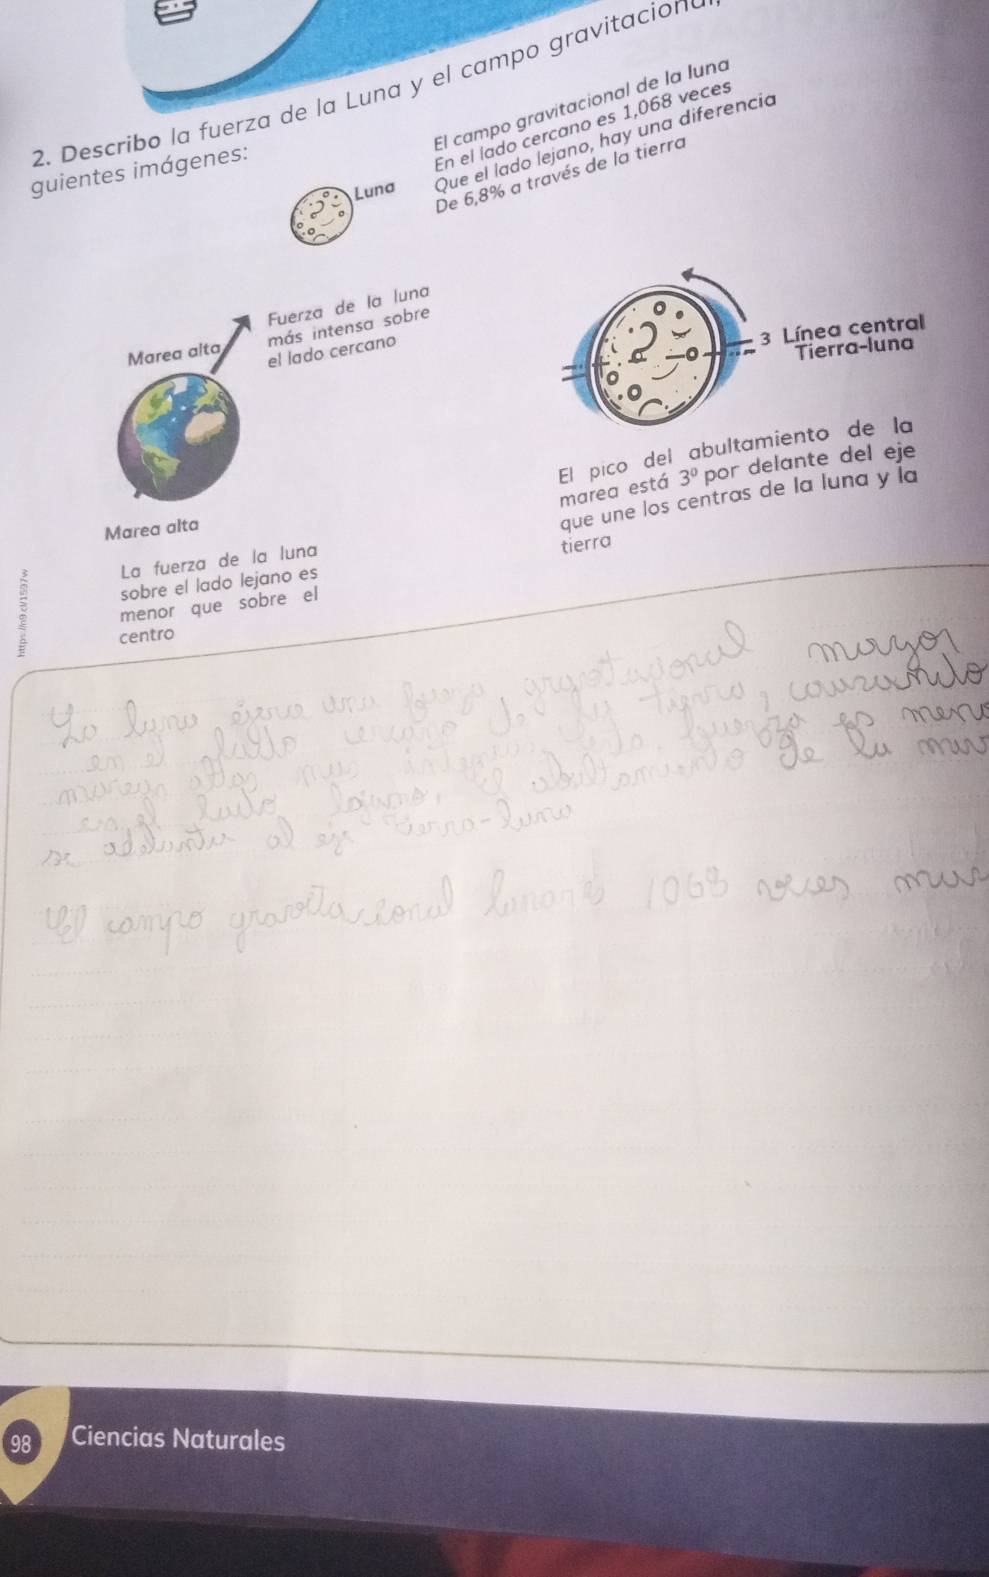 2. Describo la fuerza de la Luna y el campo gravitacional,
guientes imágenes:
El campo gravitacional de la luna
En el lado cercano es 1,068 veces
Que el lado lejano, hay una diferencia
De 6,8% a través de la tierra
Luna
Fuerza de la luna
más intensa sobre
el lado cercano
Marea alta
Marea alta
La fuerza de la luna
sobre el lado lejano es
menor que sobre el
centro
3 Línea central
Tierra-luna
El pico del abultamiento de la
marea está 3º por delante del eje
que une los centras de la luna y la
tierra
https://n9.cl/1597w
La luna ejerce una fuerza gravitacional mayor
en el lado cercano de la tierra, causando
mareas altas más
en el lado de la
se adelanta al eje tierra-luna
El campo gravitacional lunar es 1068 veces mas
98
Ciencias Naturales